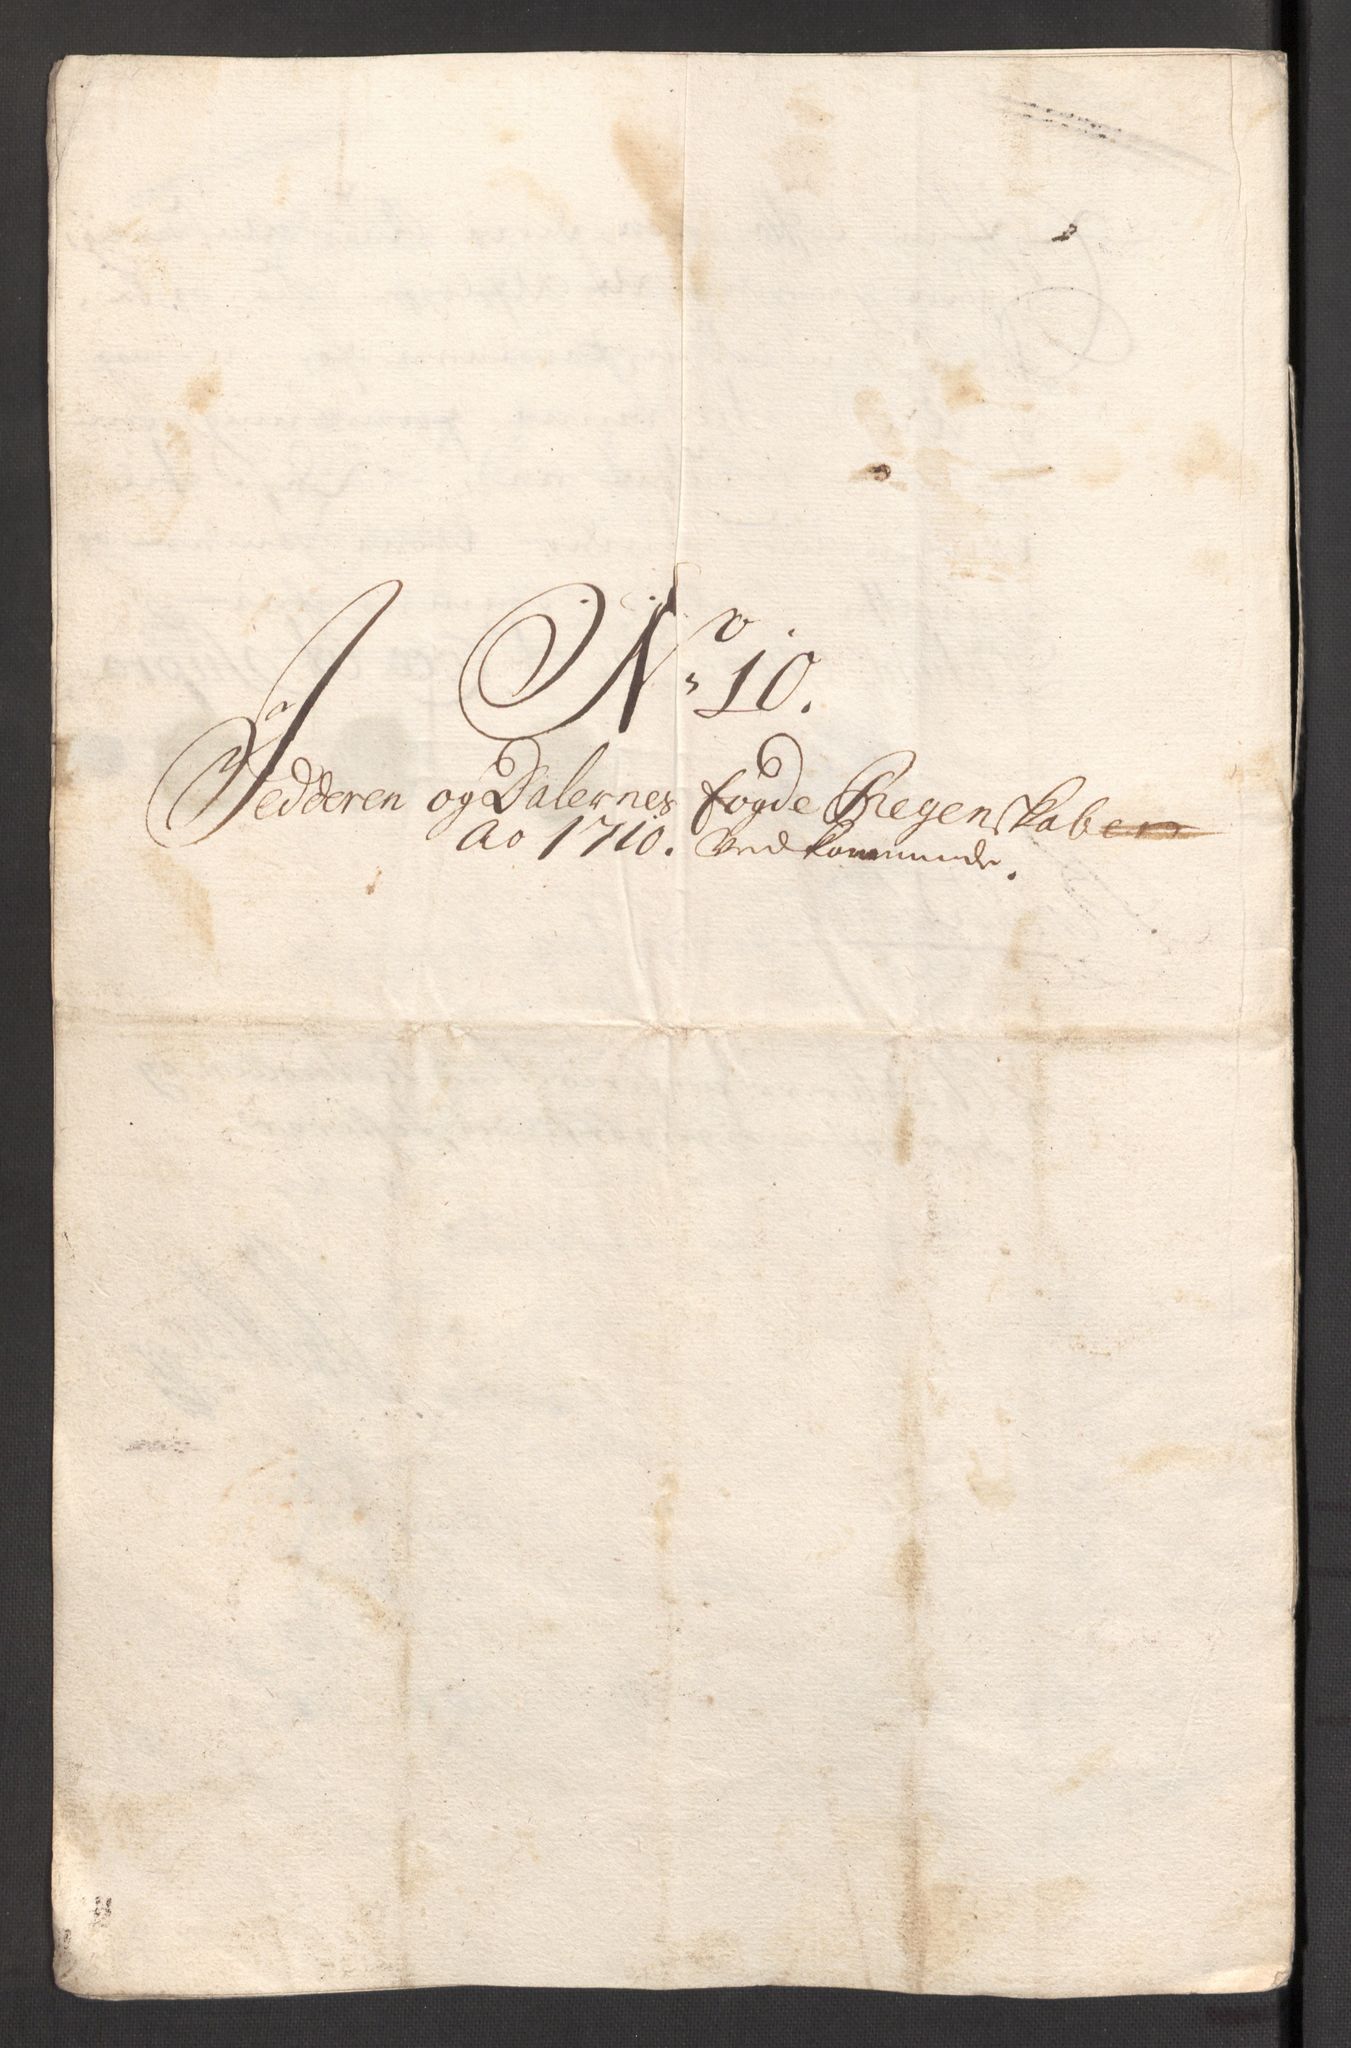 No. 10.
Jedderen og Dalernes fogde Regenskaber
Ao 1710. Vedkommende.